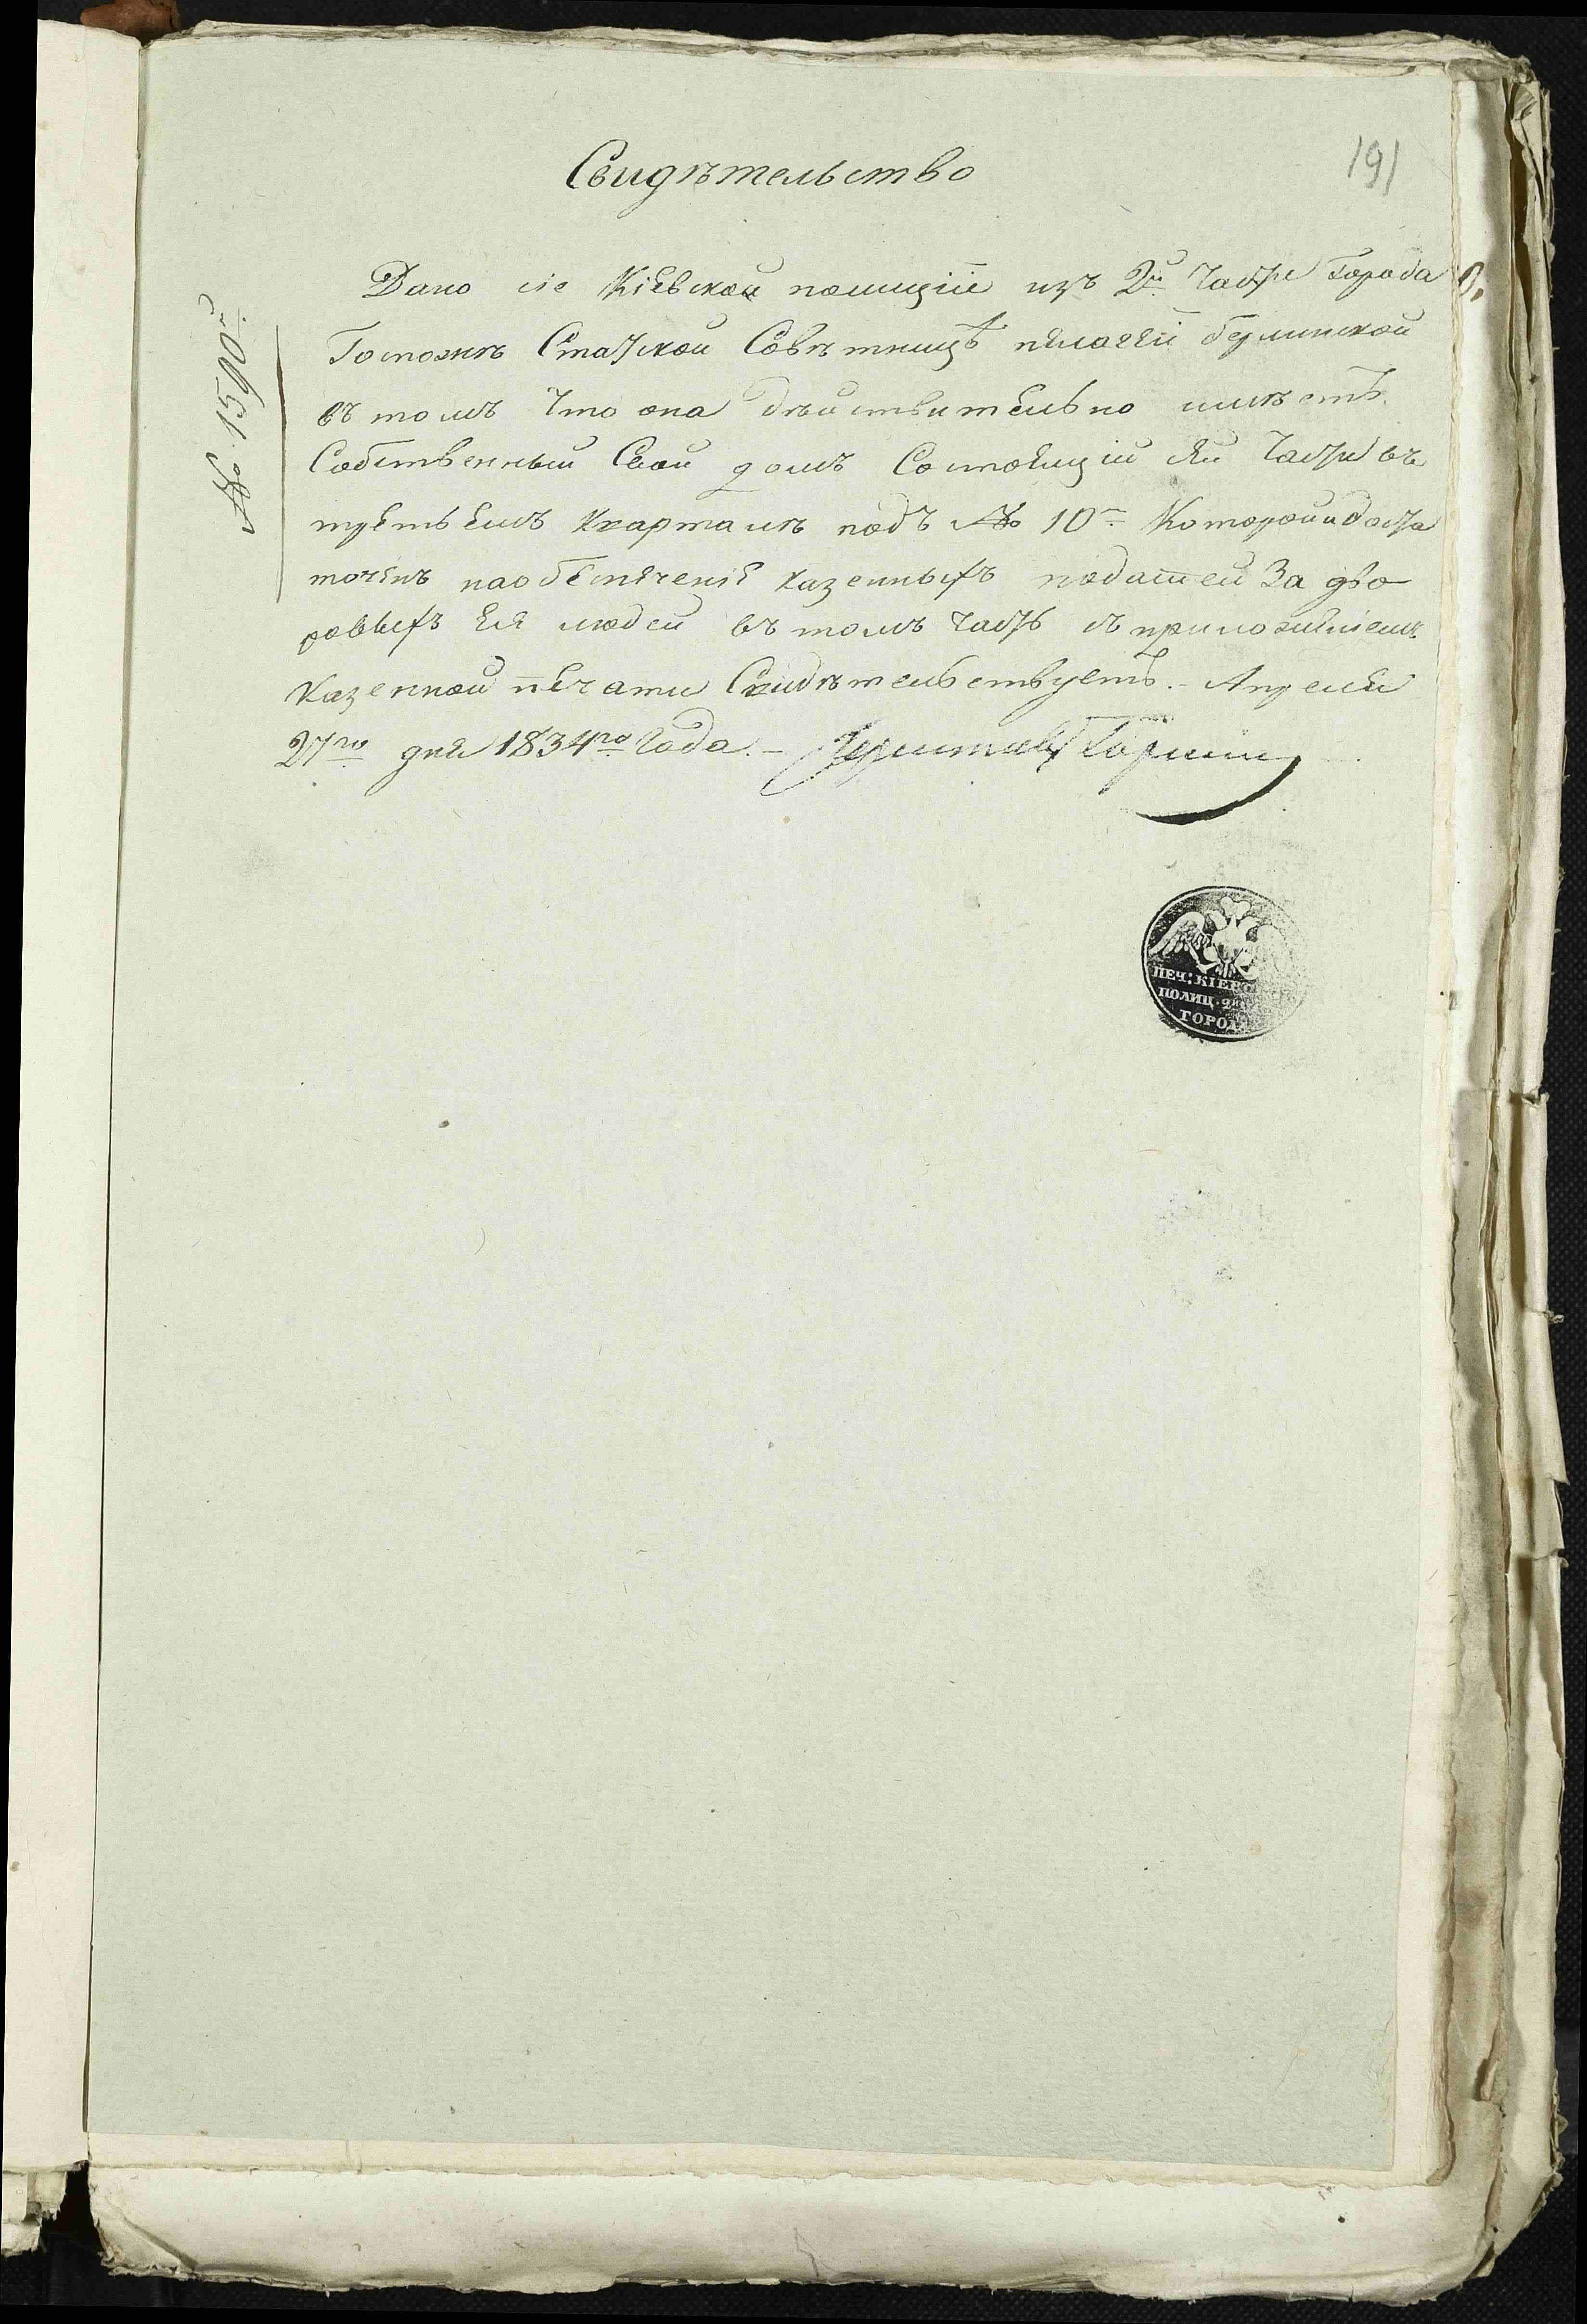 191
Свидѣтельство
№ 1590й
Дано сіе Кіевской полиціе изъ 2й Части Города
Госпожѣ Статской Совѣтницѣ пелагеи берлинской
въ томъ Что она дѣйствительно имѣетъ
Собственный Свой домъ Состоящій сей Части въ
третьемъ Кварталѣ подъ № 10м Которой идоста
точенъ на обеспечение казенныхъ податей За дво
ровыхъ ея людей въ томъ Часть съ приложениемъ
Казенной печати Свидѣтельствуетъ. - Апреля
27го дня 1834го Года. - Приставъ
ПЕЧ: КІЕВ
ПОЛИЦ. 2й
ГОРОДА